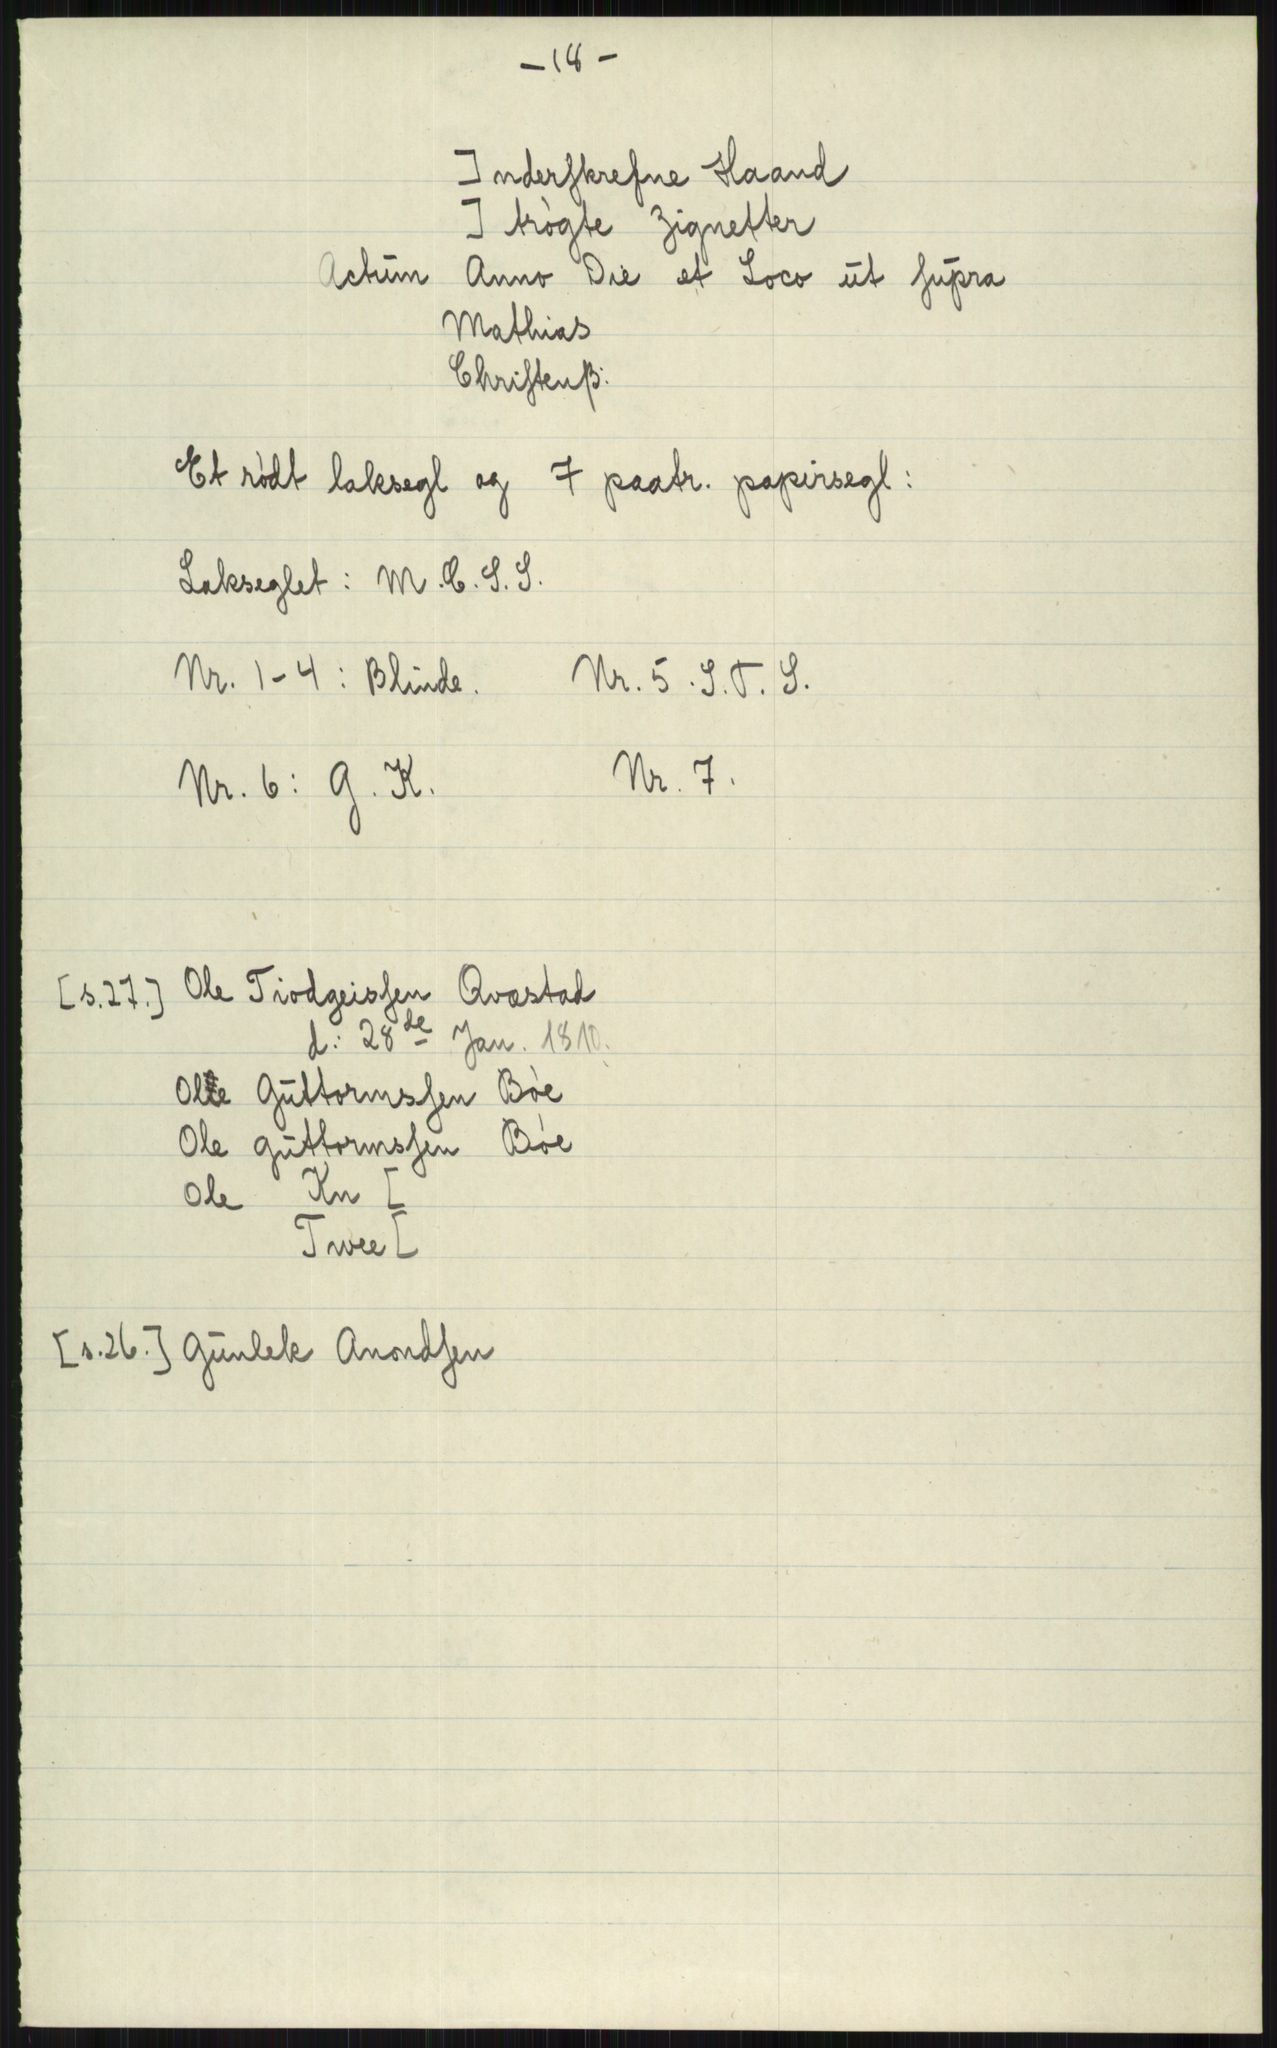 - 18 -
] nderſkrefne Haand
] trògte Zignetter
Actūm Anno Die et Loco ūt ſūpra
Mathias
Chriſtenß:
Et rødt laksegl og 7 paatr. papirsegl:
Lakseglet: M.C.S.S.
Nr. 1-4: Blinde. Nr. 5. S.T.S.
Nr. 6: G.K. Nr. 7.
[s.27.] Ole Tiodgeisſen Qvæstad
d: 28de Jan. 1810.
Ole Gūttormsſen Bòe
Ole gūttormsſen Bòe
Ole Kn [
Twee [
[s.26.] Gūnlek Anondſen